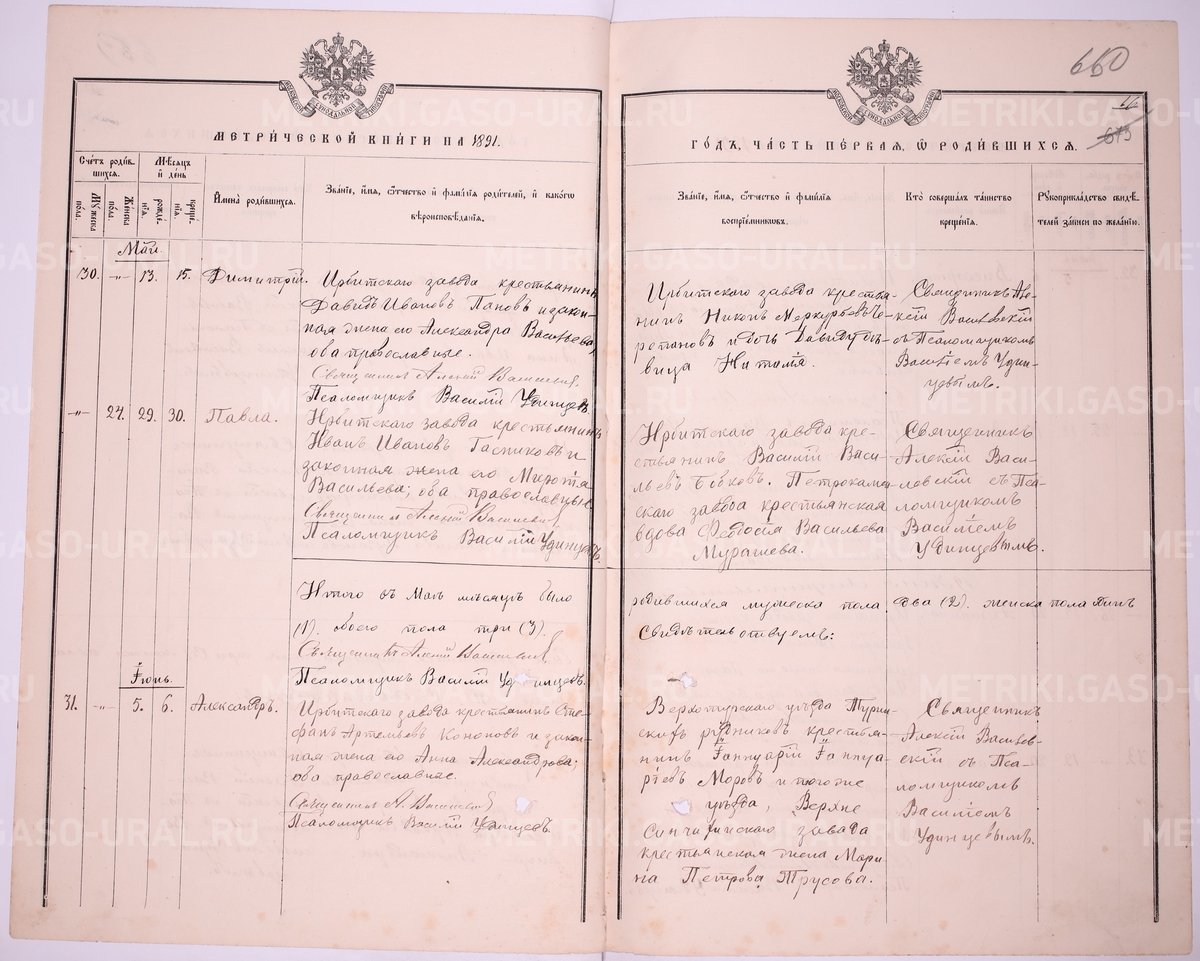 660
16
613
МЕТРИ́ЧЕСКОЙ КНИ́ГИ НА 1891.
ГО́ДЪ, ЧА́СТЬ ПЕ́РВАЯ, Ѡ РОДИ́ВШИХСЯ.
Сче́тъ роди́в-
шихся.
Мѣ́сяцъ
и҆ де́нь
Му́жеска
по́ла.
Же́нска
по́ла.
рожде-
нія.
креще-
нія.
И҆мена̀ роди́вшихся.
Зва́ніе, и҆́мя, ѻ҆́тчество и҆ фами́лія роди́телей, и҆ како́гѡ
вѣроисповѣ́данія.
Зва́ніе, и҆́мя, ѻ҆́тчество и҆ фами́лія
воспріе́мниковъ.
Кто̀ соверша́лъ та́инство
креще́нія.
Рукоприкла́дство свидѣ́-
телей за́писи по жела́нію.
Май.
30. -"- 13. 15. Димитрій.
Ирбитскаго завода крестьянинъ
Давидъ Ивановъ Пановъ и закон-
ная жена его Александра Васильева,
оба православные.
Священникъ Алексій Василевскій
Псаломщикъ Василій Удинцевъ.
Ирбитскаго завода крестья-
нинъ Никонъ Меркурьевъ Че-
репановъ и дочь Давиду дѣ-
вица Наталія.
Священникъ Але-
ксій Василевскій
съ Псаломщикомъ
Василіемъ Удин-
цевымъ.
-"- 24. 29. 30. Павла.
Ирбитскаго завода крестьянинъ
Иванъ Ивановъ и
законная жена его
Васильева; оба православные.
Священникъ Алексій Василевскій
Псаломщикъ Василій Удинцевъ.
Ирбитскаго завода кре-
стьянинъ Василій Васи-
льевъ Бобковъ. Петрокамен-
скаго завода крестьянская
вдова Ѳедосія Васильева
Мурашева.
Священникъ
Алексій Васи-
левскій съ Пса-
ломщикомъ
Василіемъ
Удинцевымъ.
Итого въ Маѣ мѣсяцѣ было родившихся мужеска пола два (2). женска пола одинъ
(1). обоего пола три (3). Свидѣтельствуемъ:
Священникъ Алексій Василевскій
Псаломщикъ Василій Удинцевъ.
Іюнь.
31. -"- 5. 6. Александръ.
Ирбитскаго завода крестьянинъ Сте-
фанъ Артемьевъ Кононовъ и закон-
ная жена его Анна Александрова;
оба православные.
Священникъ А. Василевскій
Псаломщикъ Василій Удинцевъ.
Верхотурскаго уѣзда Турин-
скихъ рудниковъ крестья-
нинъ Іаннуарій Іаннуа-
ріевъ Моровъ и того же
уѣзда, Верхне
Синячихинскаго завода
крестьянская жена Мари-
на Петрова Трусова.
Священникъ
Алексій Василев-
скій съ Пса-
ломщикомъ
Василіемъ
Удинцевымъ.
METRIKI.GASO-URAL.RU